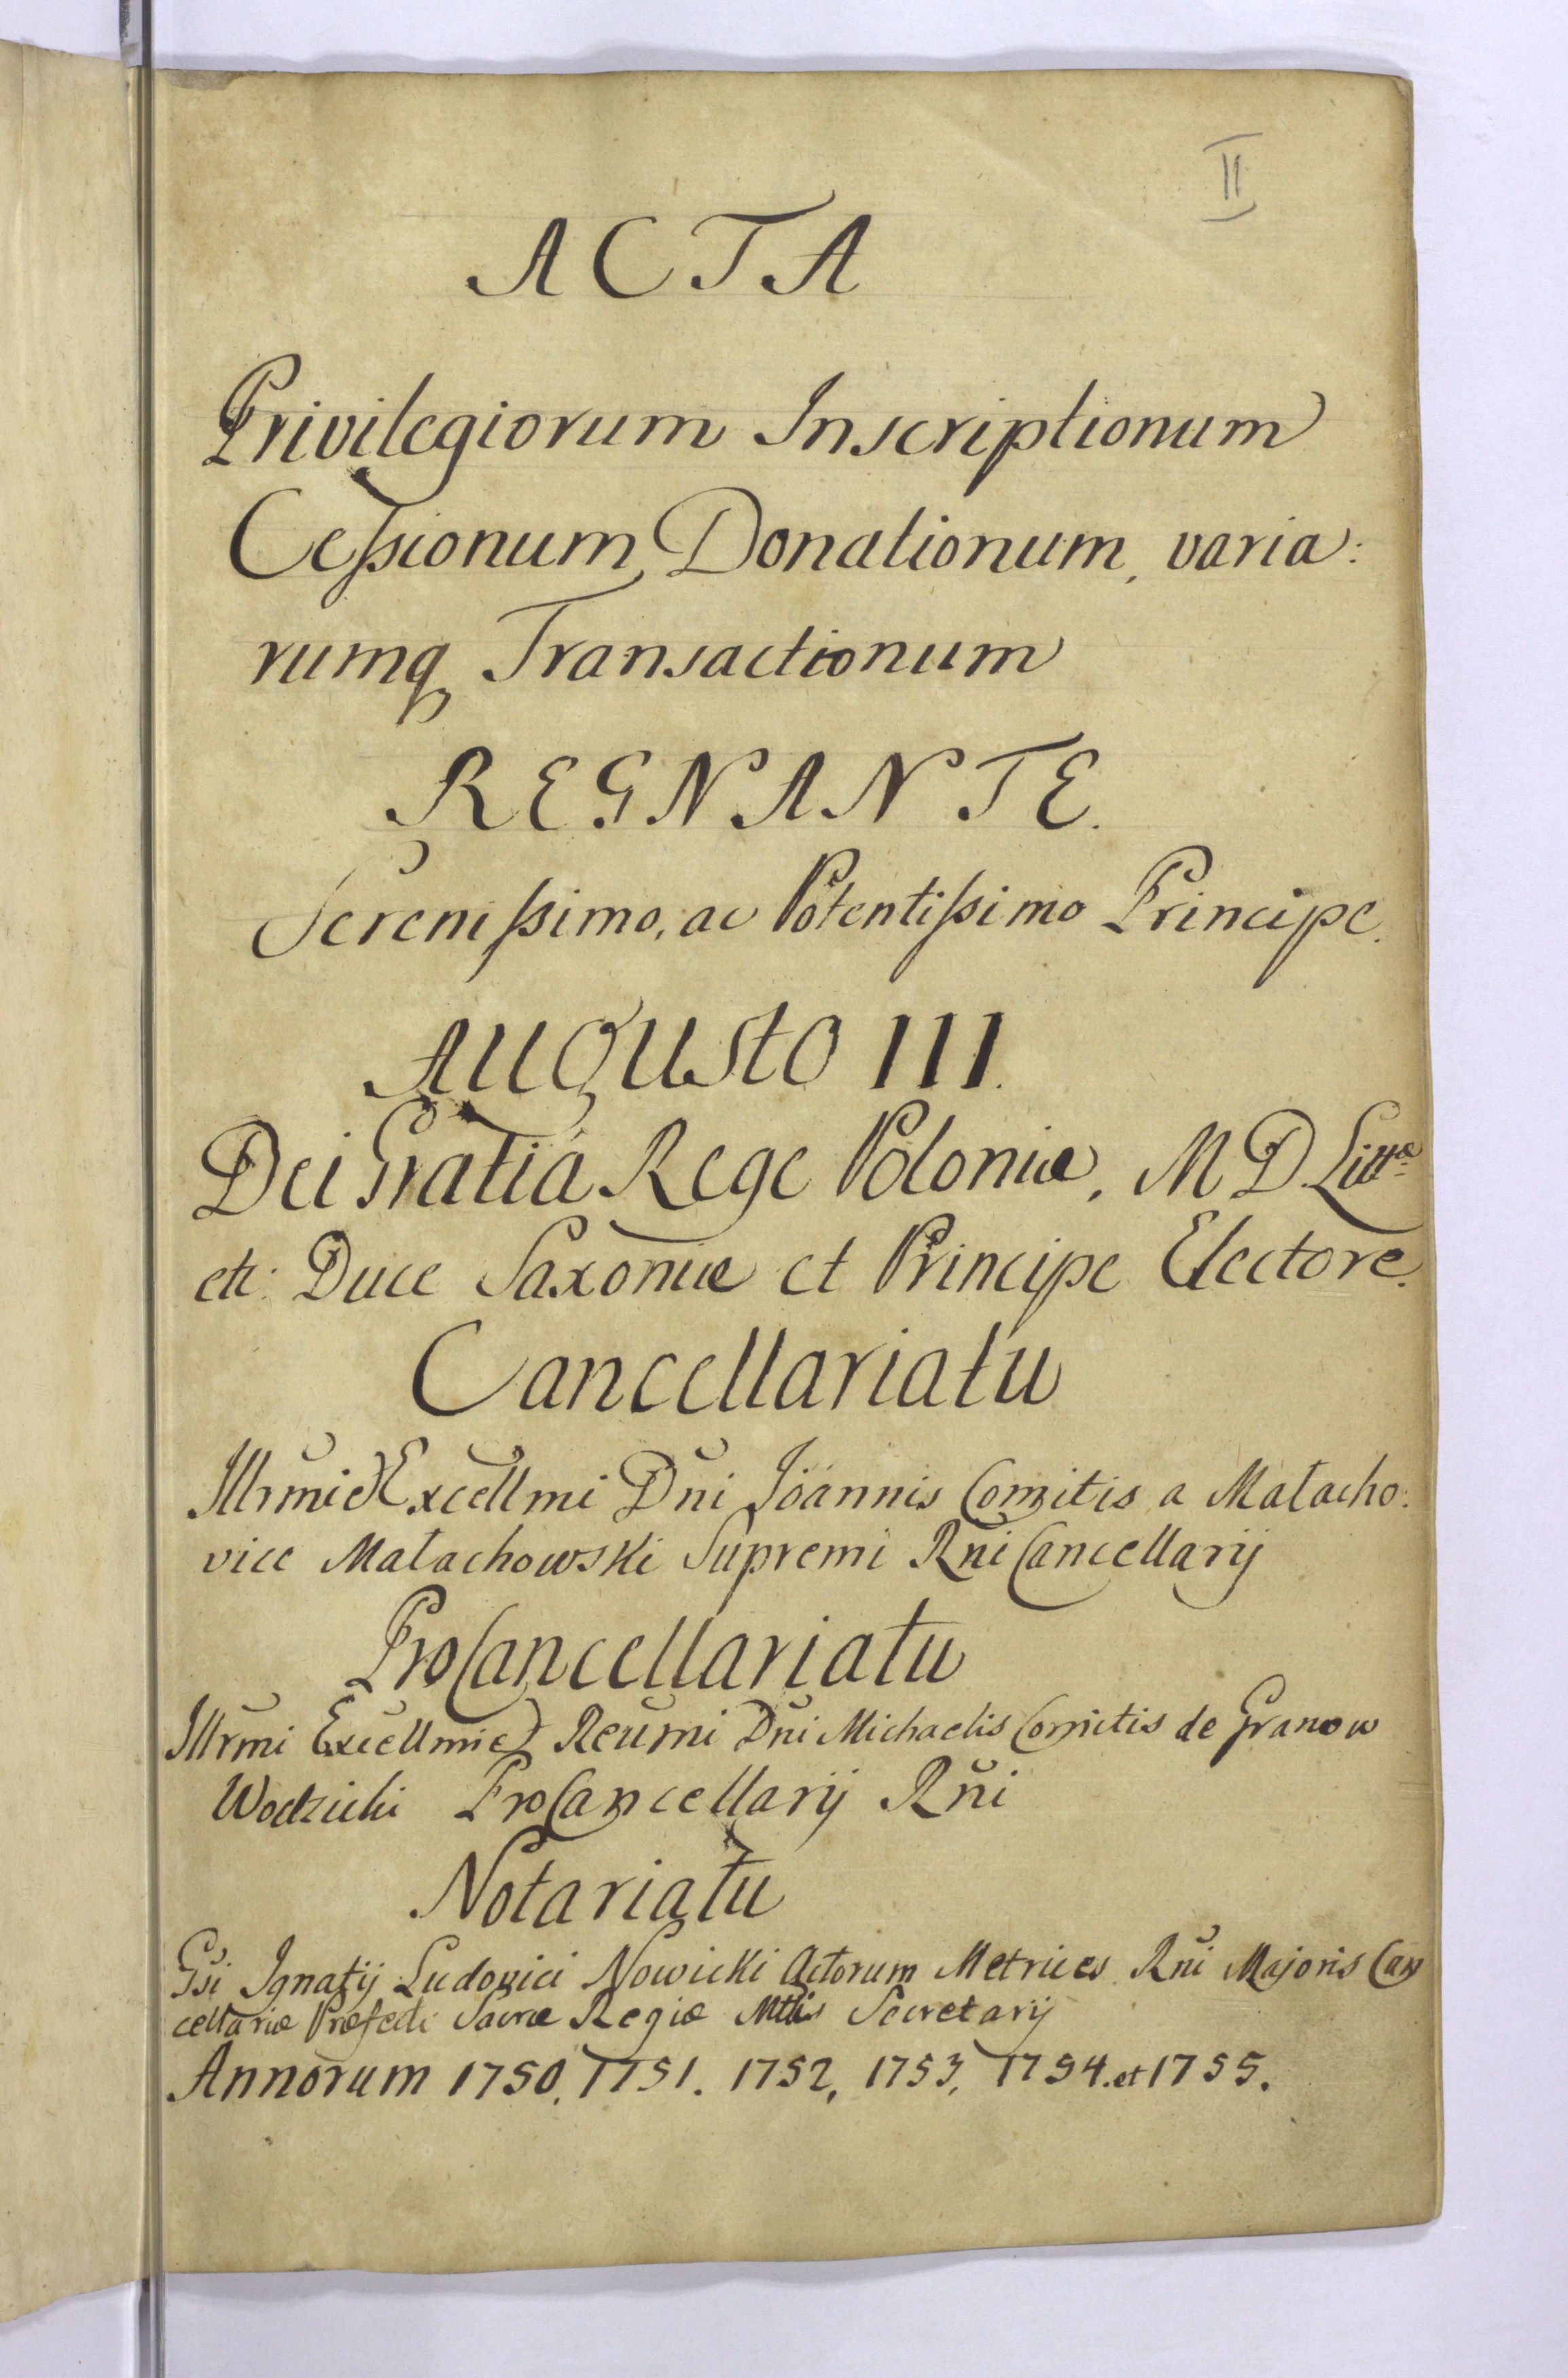 II
ACTA
Privilegiorum Inscriptionum
Cessionum, Donationum, varia:
rumq Transactionum
REGNANTE.
Serenissimo, ac Potentissimo Principe.
Augusto III.
Dei Gratia Rege Poloniæ, M D. Littæ
etc: Duce Saxoniæ et Principe Electore.
Cancellariatu
Illrmi et Excellmi Dni Joannis Comitis a Małacho:
vice Małachowski Supremi Rni Cancellarij
ProCancellariatu
Illrmi Excellmi et Reumi Dni Michaelis Comitis de Granow
Wodzicki ProCancellarij Rni
Notariatu
Gsi Ignatij Ludovici Nowicki Actorum Metrices Rni Majoris Can
cellariæ Præfecti Sacræ Regiæ Mttis Secretarij
Annorum 1750. 1751. 1752, 1753, 1754. et 1755.